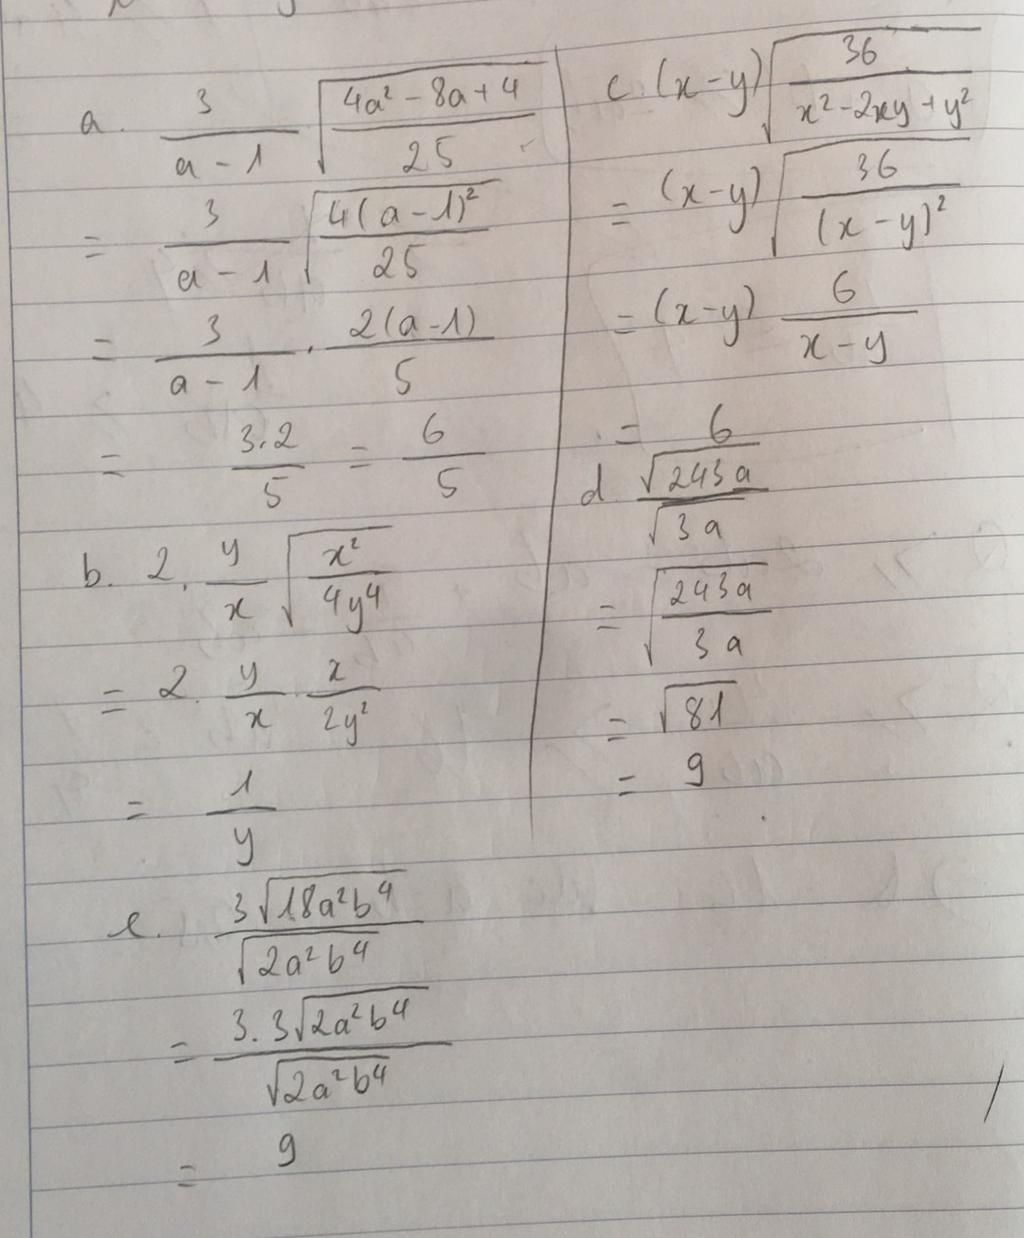 a. \frac{3}{a-1} \sqrt{\frac{4a²-8a+4}{25}}
= \frac{3}{a-1} \sqrt{\frac{4(a-1)²}{25}}
= \frac{3}{a-1} . \frac{2(a-1)}{5}
= \frac{3.2}{5} = \frac{6}{5}
b. 2. \frac{y}{x} \sqrt{\frac{x²}{4y⁴}}
= 2. \frac{y}{x} . \frac{x}{2y²}
= \frac{1}{y}
c. (x-y) \sqrt{\frac{36}{x²-2xy+y²}}
= (x-y) \sqrt{\frac{36}{(x-y)²}}
= (x-y) \frac{6}{x-y}
= 6
d. \frac{\sqrt{243a}}{\sqrt{3a}}
= \sqrt{\frac{243a}{3a}}
= \sqrt{81}
= 9
e. \frac{3\sqrt{18a²b⁴}}{\sqrt{2a²b⁴}}
= \frac{3.3\sqrt{2a²b⁴}}{\sqrt{2a²b⁴}}
= 9